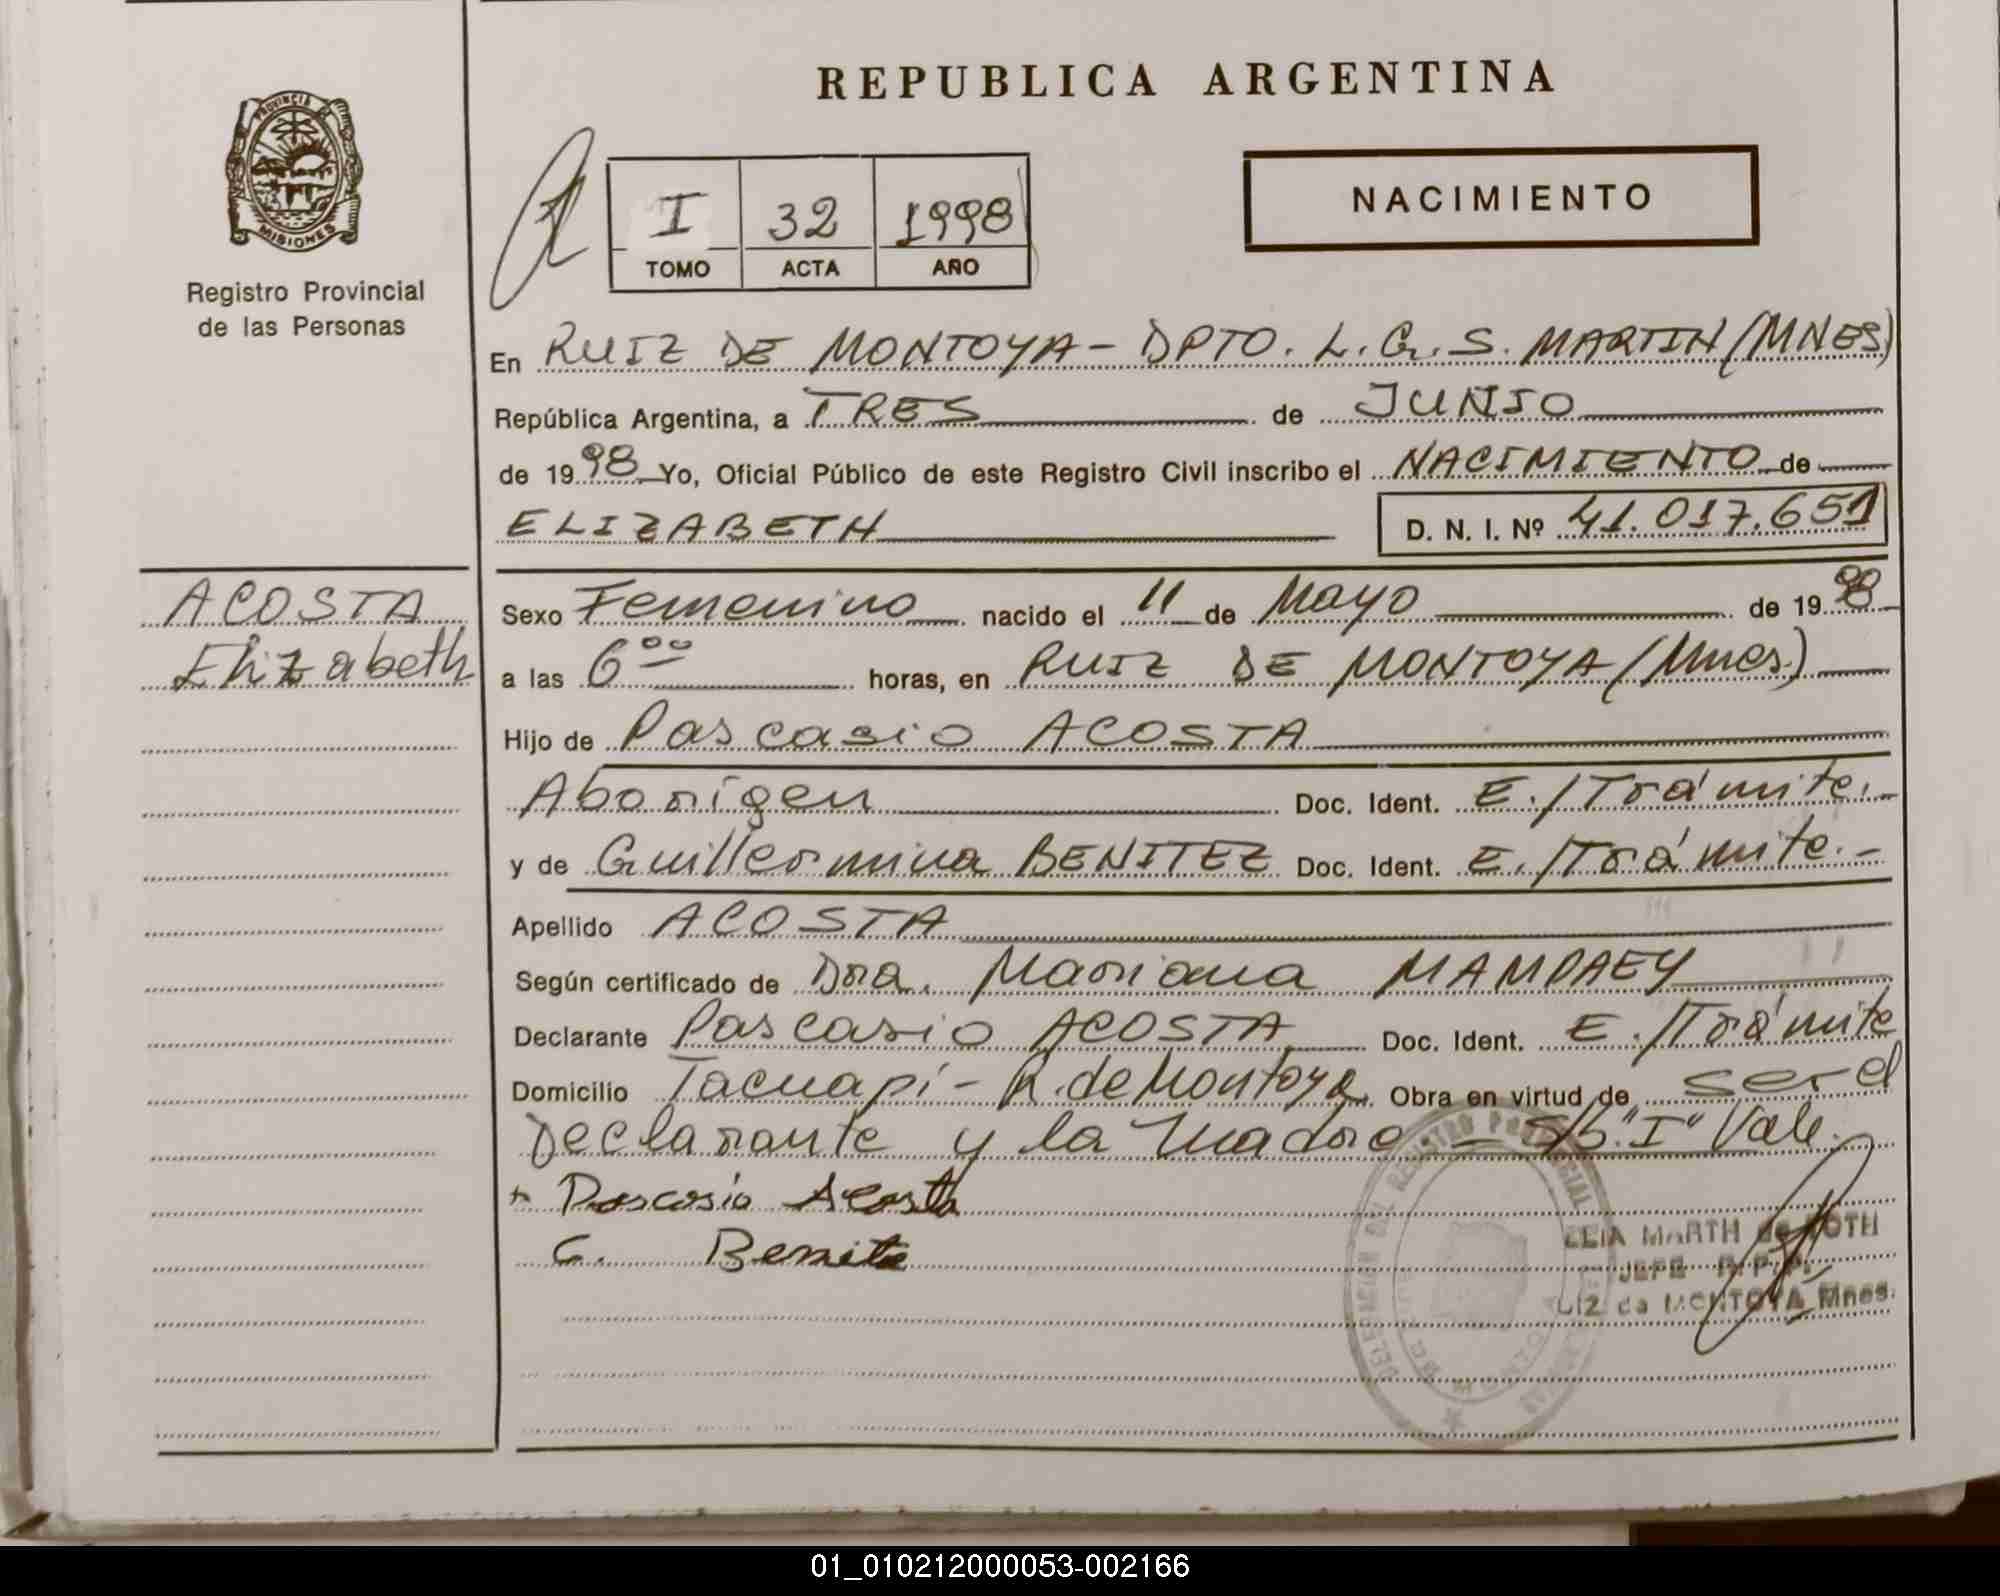 REPUBLICA ARGENTINA
PROVINCIA DE
MISIONES
Registro Provincial
de las Personas
I 32 1998
TOMO ACTA AÑO
NACIMIENTO
En RUIZ DE MONTOYA - DPTO. L. G. S. MARTIN (MNES)
República Argentina, a TRES de JUNIO
de 1998 Yo, Oficial Público de este Registro Civil inscribo el NACIMIENTO de
ELIZABETH D. N. I. Nº 41.017.651
ACOSTA
Elizabeth
Sexo Femenino nacido el 11 de Mayo de 1998
a las 6 00 horas, en RUIZ DE MONTOYA (Mnes.)
Hijo de Pascasio ACOSTA
Aborigen Doc. Ident. E./Trámite.-
y de Guillermina BENITEZ Doc. Ident. E./Trámite.-
Apellido ACOSTA
Según certificado de Dra. Mariana MAMPAEY
Declarante Pascasio ACOSTA Doc. Ident. E./Trámite
Domicilio Tacuapí - R. de Montoya Obra en virtud de ser el
Declarante y la madre - S/b. "I" Vale.
+ Pascasio Acosta
G. Benite
DELEGACION DEL REGISTRO PROVINCIAL
MARTH de ROTH
JEFE R.P.P.
de MONTOYA Mnes.
01_010212000053-002166